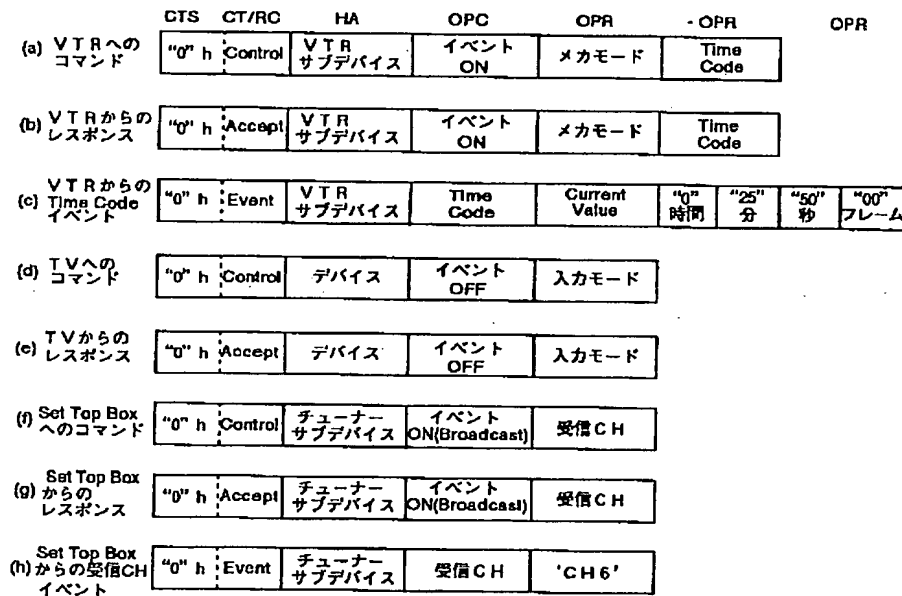 CTS CT/RC HA OPC OPR - OPR OPR
(a) VTRへの
コマンド
"0" h Control VTR
サブデバイス イベント
ON メカモード Time
Code
(b) VTRからの
レスポンス
"0" h Accept VTR
サブデバイス イベント
ON メカモード Time
Code
(c) VTRからの
Time Code
イベント
"0" h Event VTR
サブデバイス Time
Code Current
Value "0"
時間 "25"
分 "50"
秒 "00"
フレーム
(d) TVへの
コマンド
"0" h Control デバイス イベント
OFF 入力モード
(e) TVからの
レスポンス
"0" h Accept デバイス イベント
OFF 入力モード
(f) Set Top Box
へのコマンド
"0" h Control チューナー
サブデバイス イベント
ON(Broadcast) 受信CH
(g) Set Top Box
からの
レスポンス
"0" h Accept チューナー
サブデバイス イベント
ON(Broadcast) 受信CH
(h) Set Top Box
からの受信CH
イベント
"0" h Event チューナー
サブデバイス 受信CH 'CH6'